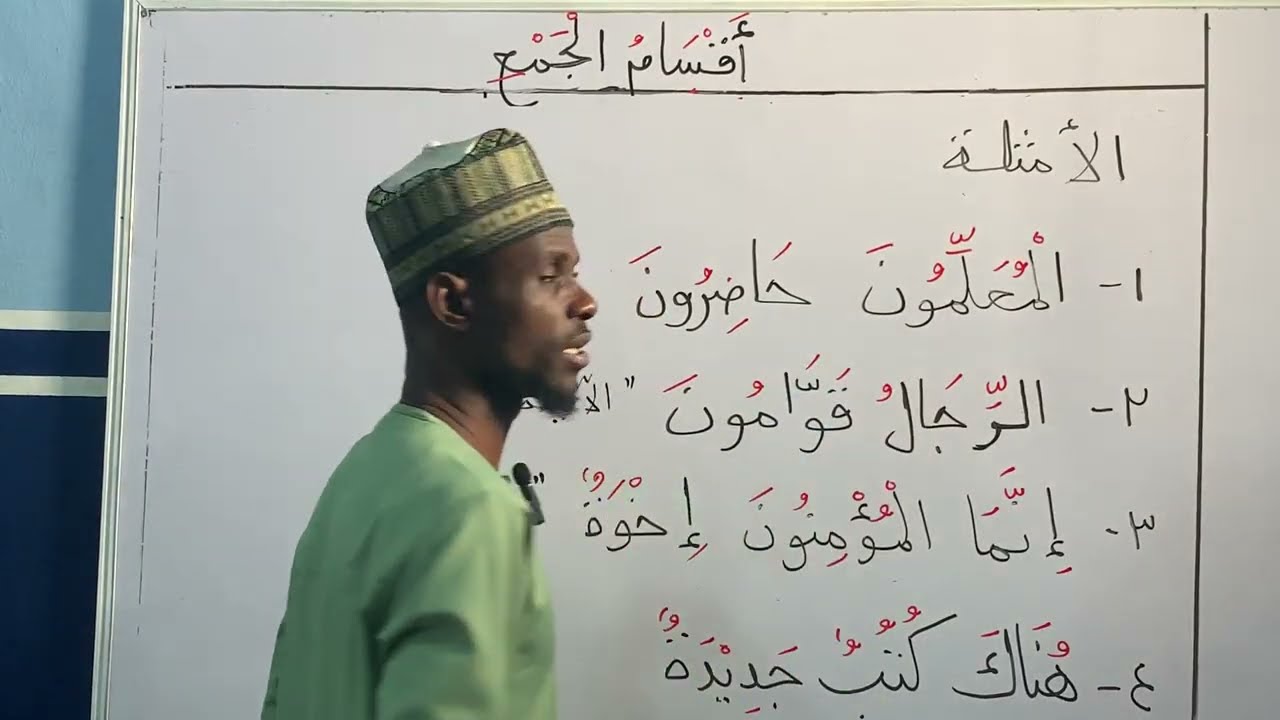 أَقْسَامُ الْجَمْعِ
الأمثلة
١- الْمُعَلِّمُونَ حَاضِرُونَ
٢- الرِّجَالُ قَوَّامُونَ "
٣- إِنَّمَا الْمُؤْمِنُونَ إِخْوَةٌ "
٤- هُنَاكَ كُتُبٌ جَدِيْدَةٌ